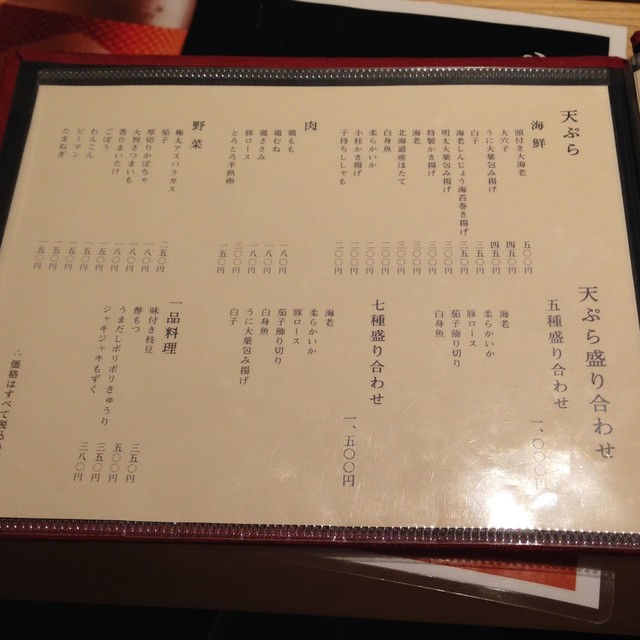 天ぷら
海鮮
頭付き大海老 五〇〇円
大穴子 四五〇円
うに大葉包み揚げ 四五〇円
白子 三五〇円
海老しんじょう海苔巻き揚げ 三五〇円
明太大葉包み揚げ 三〇〇円
特製かき揚げ 三〇〇円
海老 三〇〇円
北海道産ほたて 三〇〇円
白身魚 二〇〇円
柔らかいか 二〇〇円
小柱かき揚げ 二〇〇円
子持ちししゃも 二〇〇円
肉
鶏もも 一八〇円
鶏むね 一八〇円
鶏ささみ 一八〇円
豚ロース 三〇〇円
とろとろ半熟卵 一五〇円
野菜
極太アスパラガス 二五〇円
茄子 一八〇円
厚切りかぼちゃ 一八〇円
大判さつまいも 一八〇円
香りまいたけ 一五〇円
ごぼう 一五〇円
れんこん 一五〇円
ピーマン 一五〇円
たまねぎ 一五〇円
天ぷら盛り合わせ
五種盛り合わせ 一、〇〇〇円
海老
柔らかいか
豚ロース
茄子飾り切り
白身魚
七種盛り合わせ 一、五〇〇円
海老
柔らかいか
豚ロース
茄子飾り切り
白身魚
うに大葉包み揚げ
白子
一品料理
味付き枝豆 三五〇円
酢もつ 五〇〇円
うまだしポリポリきゅうり 三五〇円
ジャキジャキもずく 三八〇円
∴ 価格はすべて税込